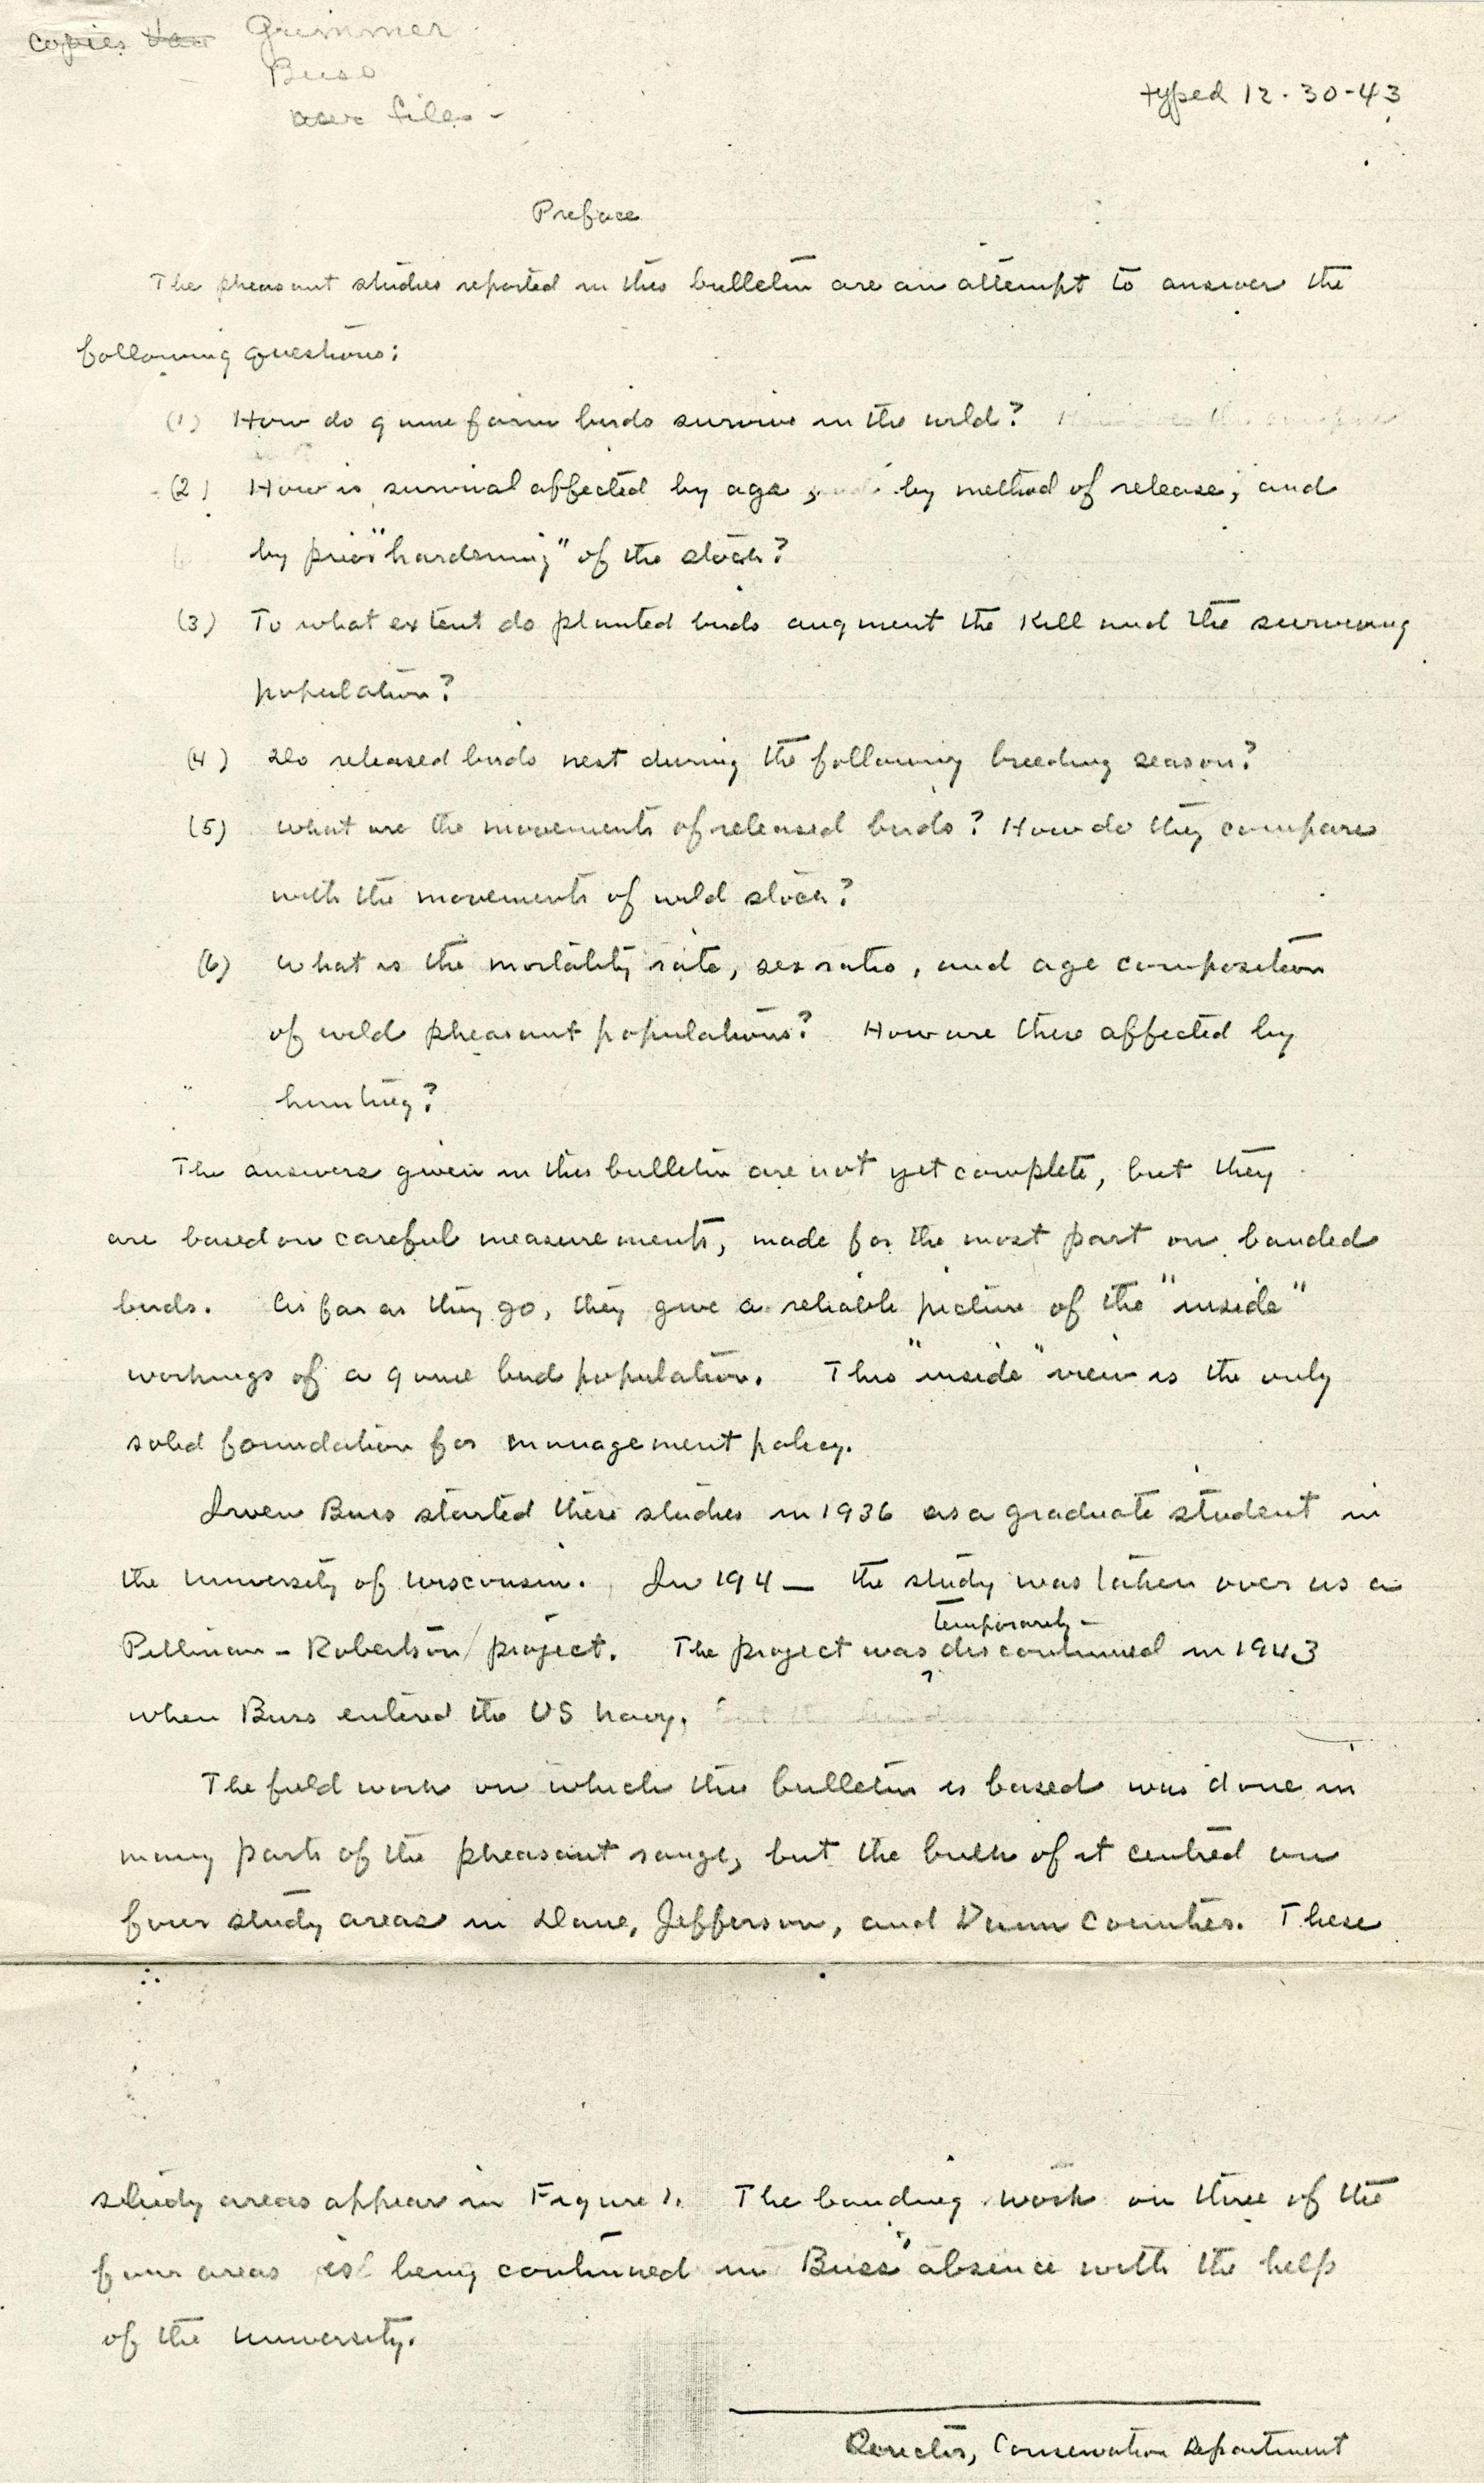 copies Grimmer
Buss
our files -
typed 12-30-43
Preface
The pheasant studies reported in this bulletin are an attempt to answer the
following questions:
(1) How do game farm birds survive in the wild?
(2) How is survival affected by age, by method of release, and
by prior "hardening" of the stock?
(3) To what extent do planted birds augment the kill and the surviving
population?
(4) Do released birds nest during the following breeding season?
(5) What are the movements of released birds? How do they compare
with the movements of wild stock?
(6) What is the mortality rate, sex ratio, and age composition
of wild pheasant populations? How are these affected by
hunting?
The answers given in this bulletin are not yet complete, but they
are based on careful measurements, made for the most part on banded
birds. As far as they go, they give a reliable picture of the "inside"
workings of a game bird population. This "inside" view is the only
solid foundation for management policy.
Irven Buss started these studies in 1936 as a graduate student in
the University of Wisconsin. In 194_ the study was taken over as a
Pittman-Robertson project. The project was temporarily discontinued in 1943
when Buss entered the US Navy.
The field work on which this bulletin is based was done in
many parts of the pheasant range, but the bulk of it centred on
four study areas in Dane, Jefferson, and Dunn Counties. These
study areas appear in Figure 1. The banding work on three of the
four areas is being continued in Buss' absence with the help
of the University.
Director, Conservation Department